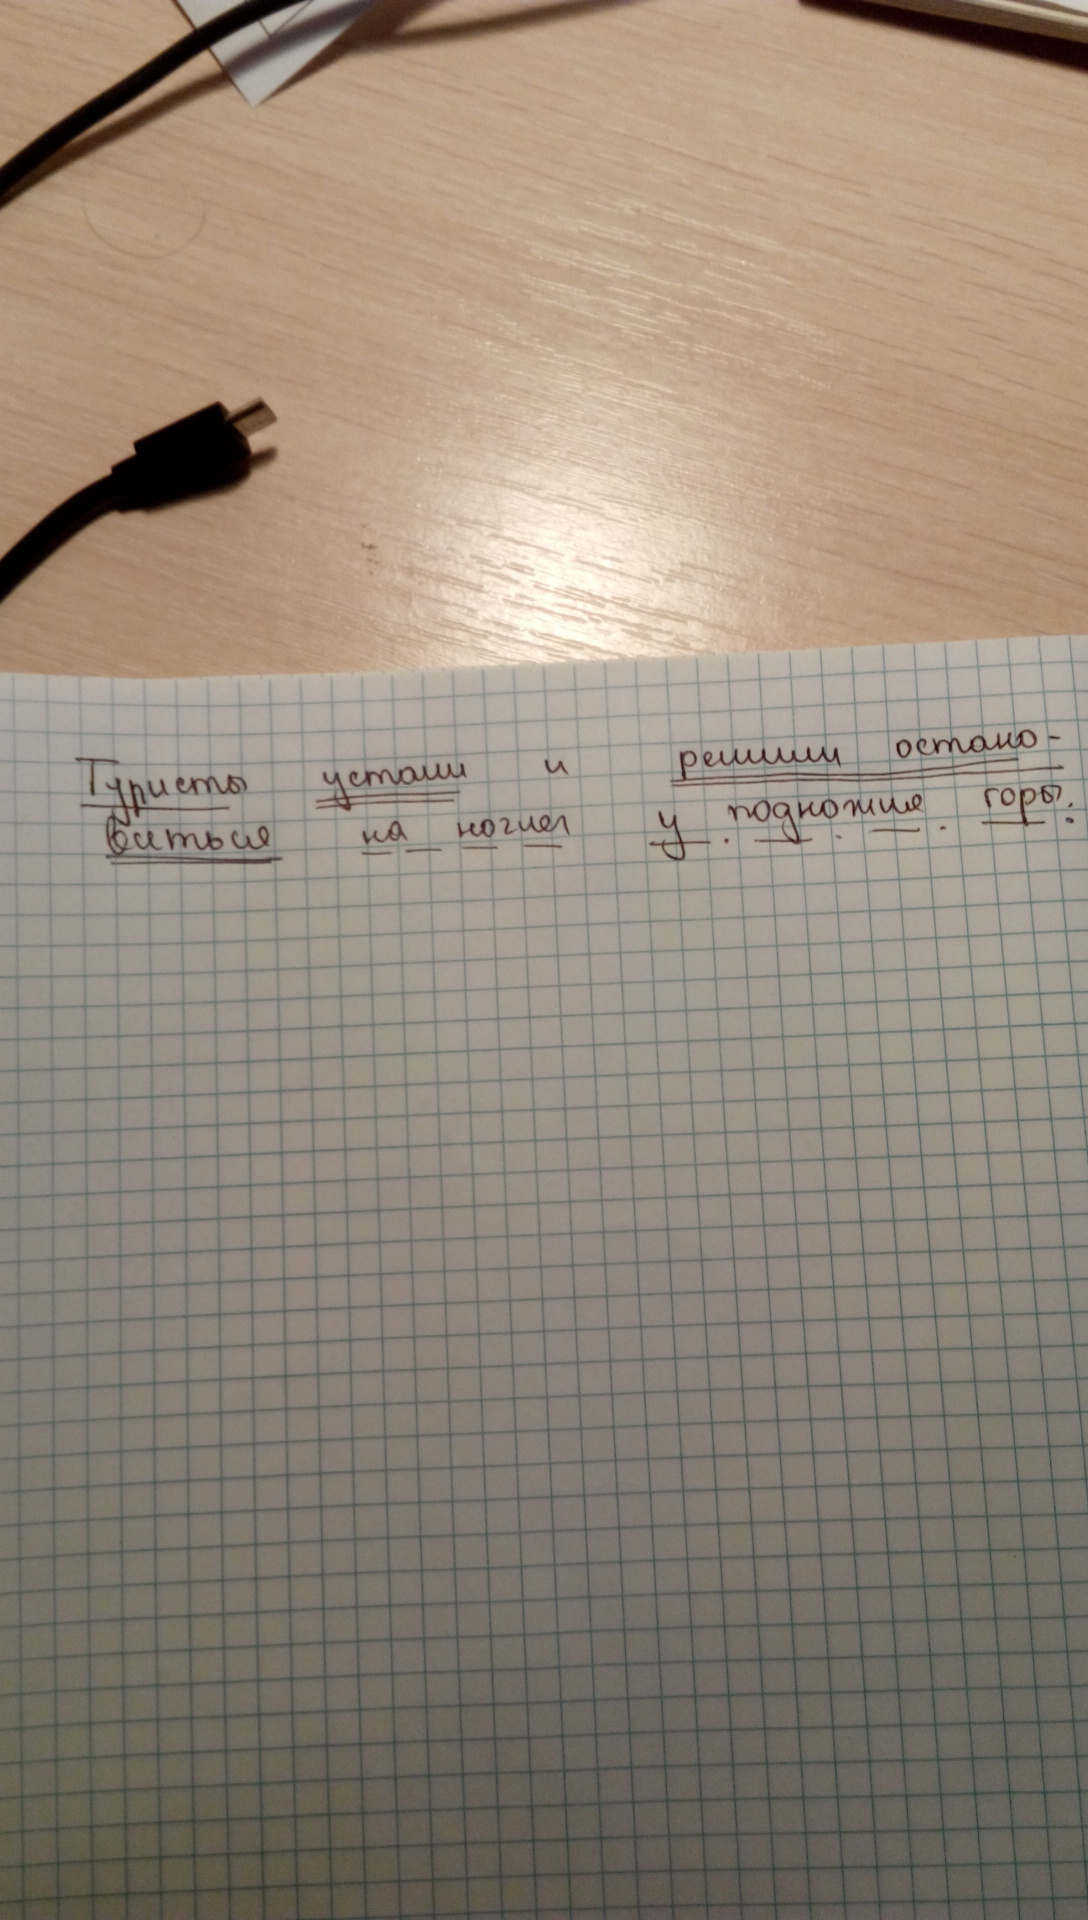 Туристы устали и решили остано-
виться на ночлег у подножия горы.